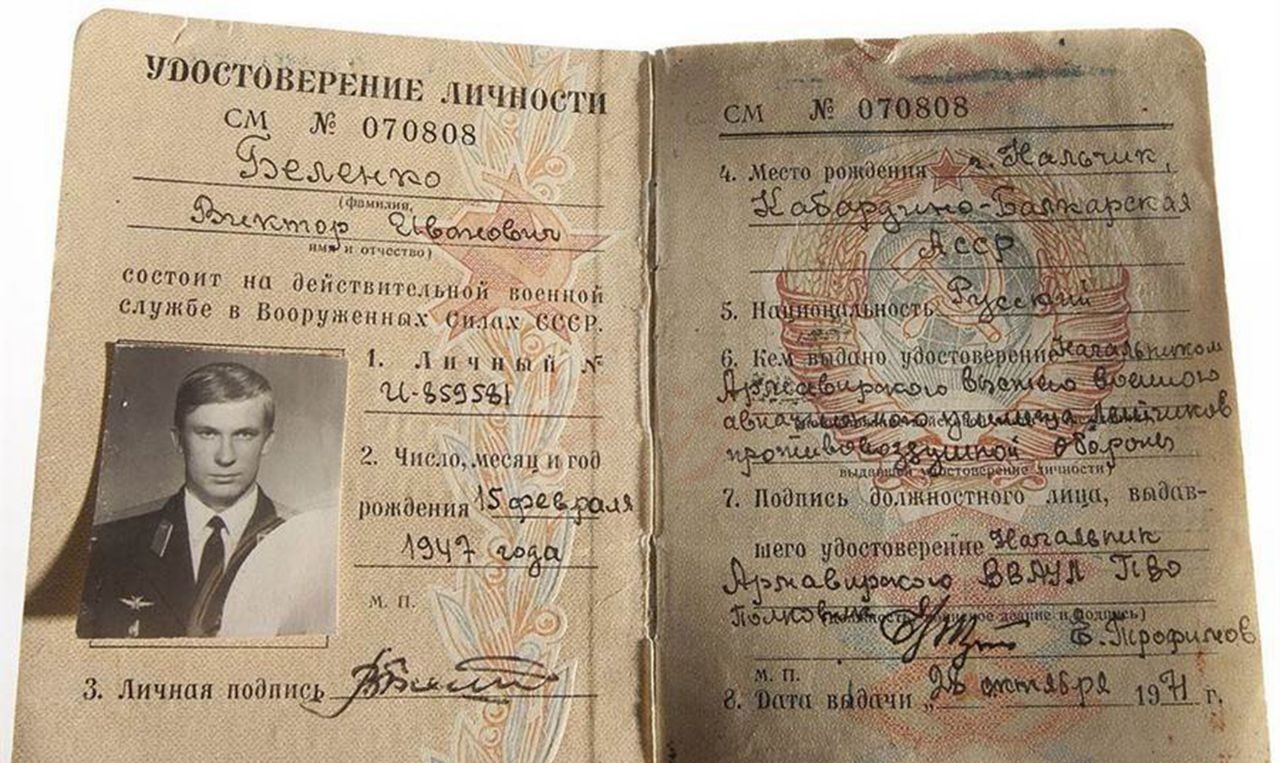 УДОСТОВЕРЕНИЕ ЛИЧНОСТИ
СМ № 070808
Беленко
(фамилия,
Виктор Иванович
имя и отчество)
состоит на действительной военной
службе в Вооруженных Силах СССР.
1. Личный №
И-859581
2. Число, месяц и год
рождения 15 февраля
1947 года
М. П.
3. Личная подпись
СМ № 070808
4. Место рождения г. Нальчик,
Кабардино-Балкарская
АССР
5. Национальность Русский
6. Кем выдано удостоверение Начальником
Армавирского высшего военного
авиационного училища летчиков
противовоздушной обороны
выдавшей удостоверение личности)
7. Подпись должностного лица, выдав-
шего удостоверение Начальник
Армавирского ВВАУЛ ПВО
Полковник Е. Трофимов
звание и подпись)
М. П.
8. Дата выдачи „28 октября 1971 г.